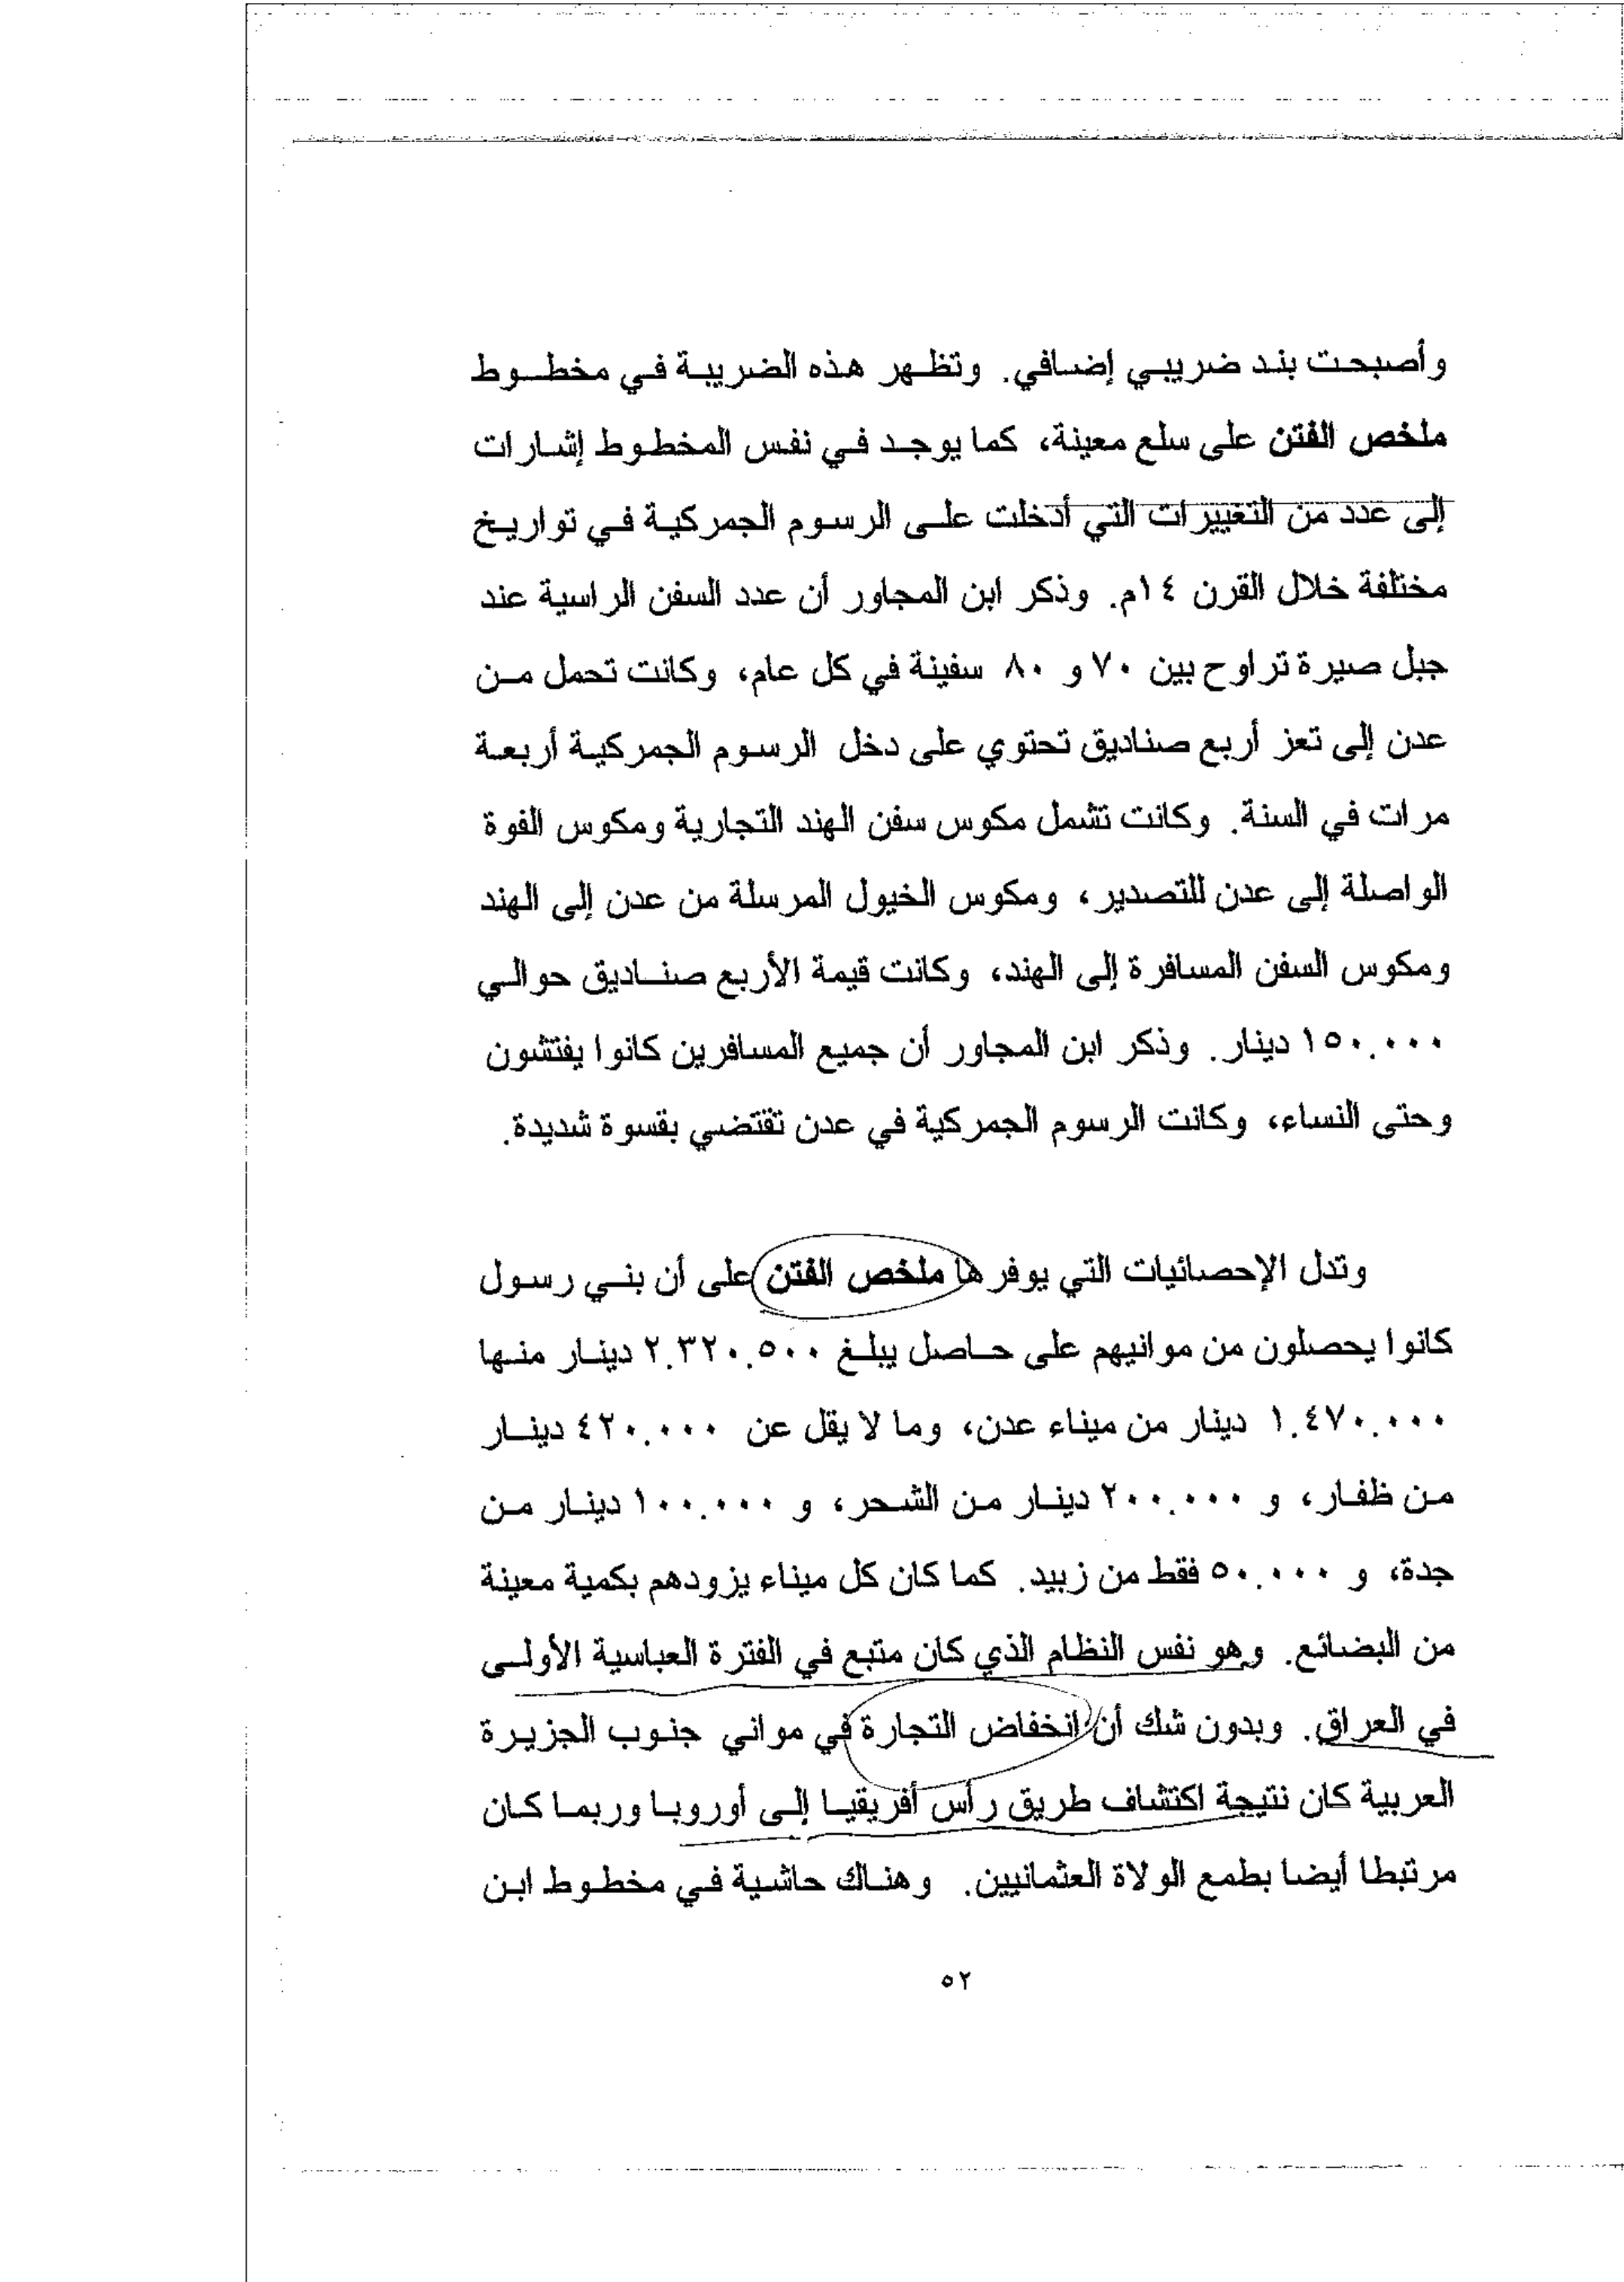 وأصبحت بند ضريبي إضافي. وتظهر هذه الضريبة في مخطوط
ملخص الفتن على سلع معينة، كما يوجد في نفس المخطوط إشارات
إلى عدد من التغييرات التي أدخلت على الرسوم الجمركية في تواريخ
مختلفة خلال القرن ١٤م. وذكر ابن المجاور أن عدد السفن الراسية عند
جبل صيرة تراوح بين ٧٠ و ٨٠ سفينة في كل عام، وكانت تحمل من
عدن إلى تعز أربع صناديق تحتوي على دخل الرسوم الجمركية أربعة
مرات في السنة. وكانت تشمل مكوس سفن الهند التجارية ومكوس الفوة
الواصلة إلى عدن للتصدير، ومكوس الخيول المرسلة من عدن إلى الهند
ومكوس السفن المسافرة إلى الهند، وكانت قيمة الأربع صناديق حوالي
١٥٠.٠٠٠ دينار. وذكر ابن المجاور أن جميع المسافرين كانوا يفتشون
وحتى النساء، وكانت الرسوم الجمركية في عدن تقتضي بقسوة شديدة.
وتدل الإحصائيات التي يوفرها ملخص الفتن على أن بني رسول
كانوا يحصلون من موانيهم على حاصل يبلغ ٢.٣٢٠.٥٠٠ دينار منها
١.٤٧٠.٠٠٠ دينار من ميناء عدن، وما لا يقل عن ٤٢٠.٠٠٠ دينار
من ظفار، و ٢٠٠.٠٠٠ دينار من الشحر، و ١٠٠.٠٠٠ دينار من
جدة، و ٥٠.٠٠٠ فقط من زبيد. كما كان كل ميناء يزودهم بكمية معينة
من البضائع. وهو نفس النظام الذي كان متبع في الفترة العباسية الأولى
في العراق. وبدون شك أن انخفاض التجارة في مواني جنوب الجزيرة
العربية كان نتيجة اكتشاف طريق رأس أفريقيا إلى أوروبا وربما كان
مرتبطا أيضا بطمع الولاة العثمانيين. وهناك حاشية في مخطوط ابن
٥٢